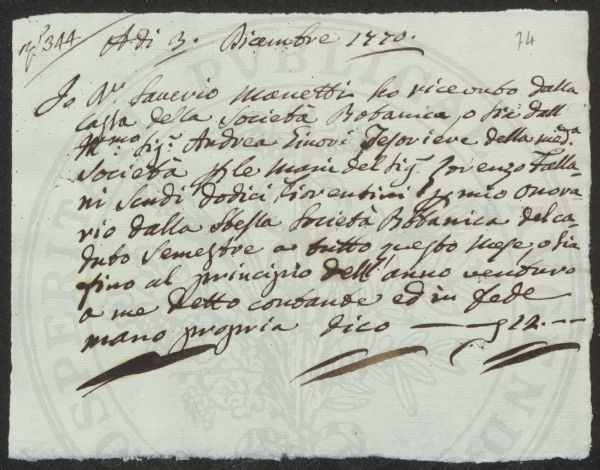 N.º 344
74
Adi 3. Dicembre 1770.
Io Dr. Saverio Manetti ho ricevuto dalla
Cassa della Società Botanica, o sia dall'
Ill.mo Sig.r Andrea Ginori Tesoriere della med.a
Società p le mani del Sig.r Lorenzo Falla-
ni scudi dodici fiorentini p mio onora-
rio dalla stessa Società Botanica del ca-
duto semestre a tutto questo mese, o sia
fino al principio dell'anno venturo
a me detto contande ed in fede
mano propria dico — 12. —
PUBLICA
PROSPERITATI